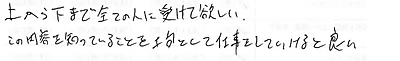 上から下まで全ての人に受けて欲しい.
この内容を知っていることを前として仕事をしていけると良い